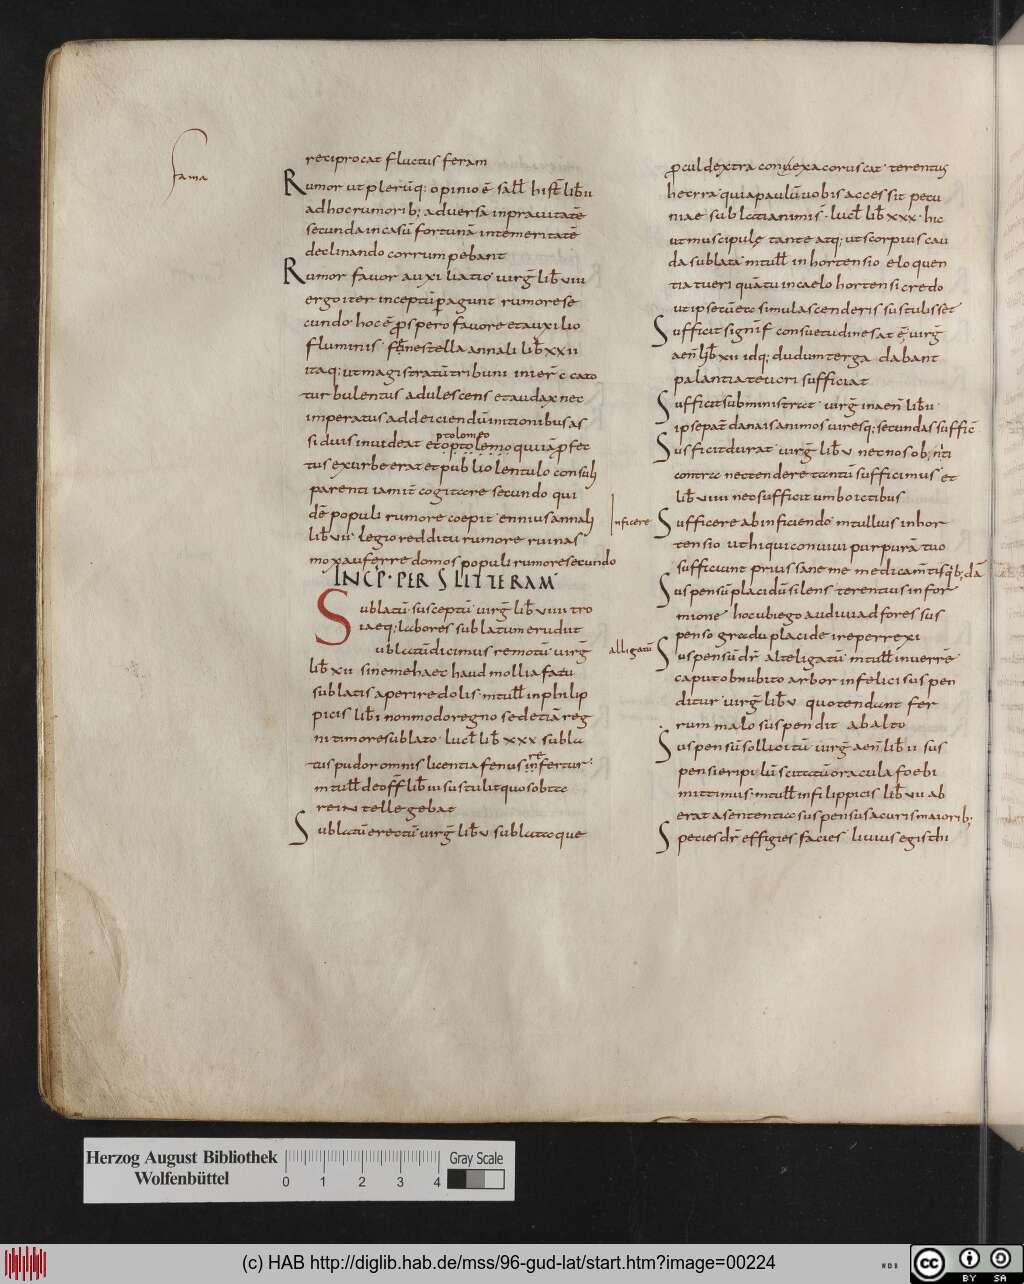 fama
reciprocat fluctus feram
Rumor ut plerũq: opinio ẽ sall̃ hist̃ lib̃ ii
ad hoc rumorib; adversã in pravitatẽ
secunda in casũ fortunã in temeritatẽ
declinando corrumpebant
Rumor favor auxiliatio virg̃ lib̃ viii
ergo iter inceptũ peragunt rumore se
cundo hoc ẽ prospero favore et auxilio
fluminis fenestella annali lib̃ xxii
itaq; ut magistratũ tribuni inier̃ c cato
turbulentus adulescens et audax nec
imperatus ad deiciendũ initionibus as
siduis invideat
ptolomeo
et optolemio qui iã profec
tus ex urbe erat et publio lentulo consuli
parenti iam it̃ cogitare secundo qui
dẽ populi rumore coepit ennius annali
lib̃ vii legio redditu rumore ruinas
mox auferre domos populi rumore secundo
INCP̃ · PER S LITTERAM
Sublatũ susceptũ virg̃ lib̃ viiii tro
iaeq; labores sublatum erudiit
ublatũ dicimus remotũ virg̃
lib̃ xii sine me haec haud mollia fatu
sublatis aperire dolis m tull̃ in philip
picis lib̃ i non modo regno sed etiã reg
ni timore sublato lucl̃ lib̃ xxx subla
tus pudor omnis licentia fenus
re
infertur:
m tull̃ de off̃ lib̃ iii sustulit quos obtae
rein tellegebat
Sublatũ erectũ virg̃ lib̃ v sublataque
procul dextra conyexa coruscat terentius
hetrra quia paulũ vobis accessit pecu
niae sublati animi s̃ · lucl̃ lib̃ xxx · hic
ut muscipule tante atq; ut scorpius cau
da sublata m tull̃ in hortensio eloquen
tia tueri quãtũ in caelo hortensi credo
ut ipse tũ etc simul ascenderis sustulisset
Sufficit signif̃ consuetudine sat ẽ, virg̃
aen̄ lib̃ xii idq; dudum terga dabant
palantia teucri sufficiat
Sufficit subministrat virg̃ in aen̄ lib̃ ii
ipse pat̃ danais animos viresq; secundas suffic̃
Sufficit durat virg̃ lib̃ v nec nos ob; nr̄ti
contra nec tendere tantũ sufficimus et
lib̃ viiii nec sufficit umbo ictibus
Inficere
Sufficere ab inficiendo m tullius in hor
tensio ut hi qui conuiui purpurã tuo
sufficiunt prius sane me medicam̃tis q̃b; dã
Suspensũ placidũ silens terentius in for
mione hoc ubi ego audivi ad fores sus
penso gradu placide ire perrexi
alligatũ
Suspensũ dr̃ alteligatũ m tull̃ in verrẽ
caput obnubito arbor infelici suspen
ditur virg̃ lib̃ v quo tendant fer
rum malo suspendit ab alto
Suspensũ sollicitũ virg̃ aen̄ lib̃ ii sus
pensi eripilũ scitatũ oracula foebi
mittimus · m tull̃ in filippicis lib̃ vii ab
erat a sententia suspensus a curis maiorib;
Species dr̃ effigies facies livius egisthi
Herzog August Bibliothek
Wolfenbüttel
0 1 2 3 4
Gray Scale
(c) HAB http://diglib.hab.de/mss/96-gud-lat/start.htm?image=00224
WDB
cc BY SA